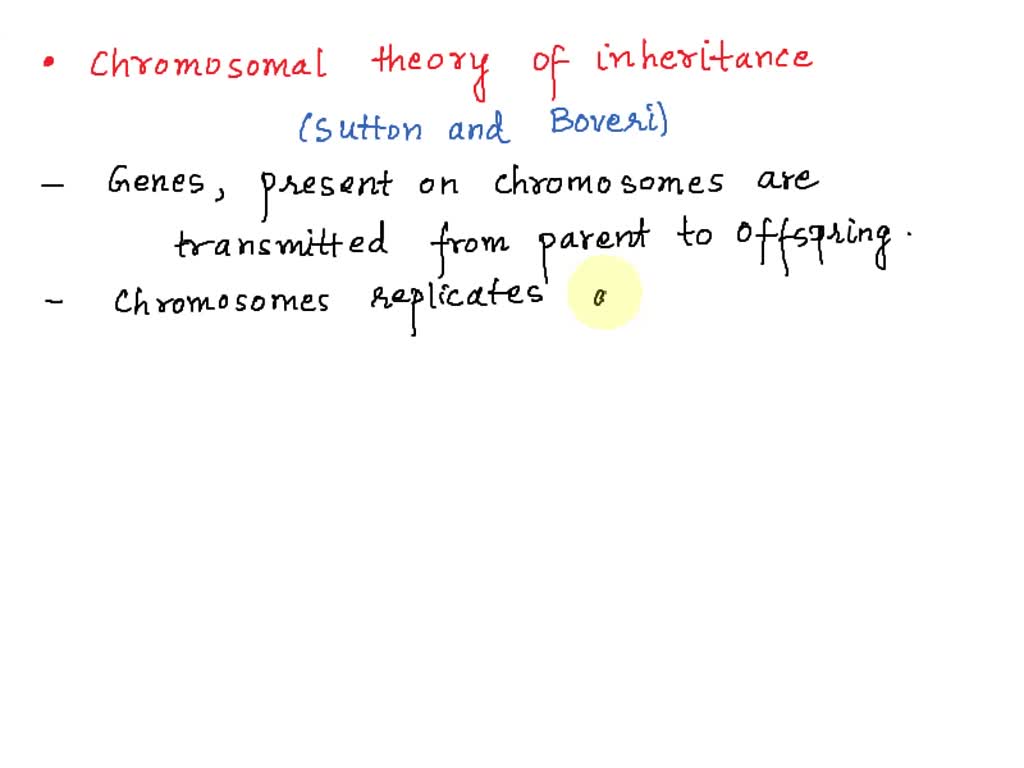 • Chromosomal theory of inheritance
(Sutton and Boveri)
- Genes, present on chromosomes are
transmitted from parent to offspring.
- Chromosomes replicates a